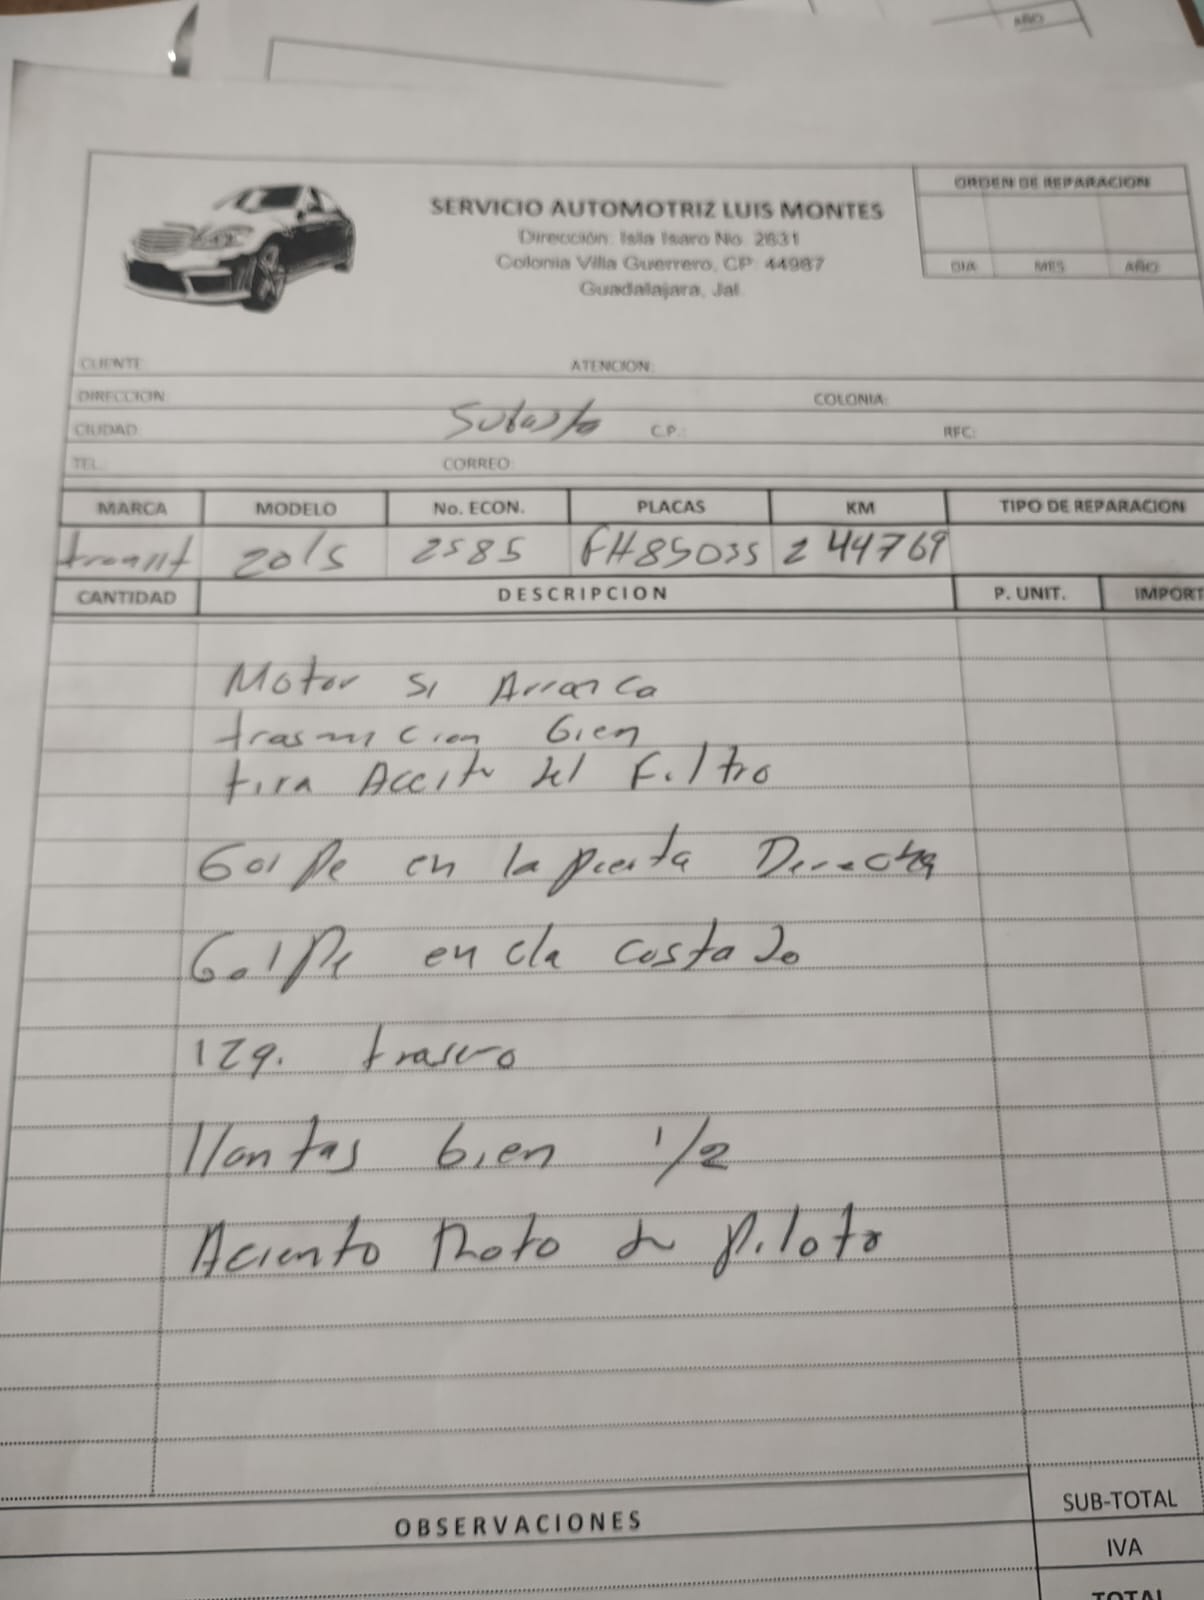 AÑO
ORDEN DE REPARACION
SERVICIO AUTOMOTRIZ LUIS MONTES
Dirección: Isla Isaro No. 2631
Colonia Villa Guerrero, CP. 44987
Guadalajara, Jal.
DIA MES AÑO
CLIENTE: ATENCION:
DIRECCION: COLONIA:
Subasta
CIUDAD: C.P.: RFC:
TEL: CORREO:
MARCA MODELO No. ECON. PLACAS KM TIPO DE REPARACION
2015 2585 244769
CANTIDAD DESCRIPCION P. UNIT. IMPORT
Motor si Arranca
trasmicion bien
tira Aceite del Filtro
Golpe en la puerta Derecha
Golpe en cla costado
izq. trasero
llantas bien 1/2
Aciento Roto de piloto
OBSERVACIONES
SUB-TOTAL
IVA
TOTAL